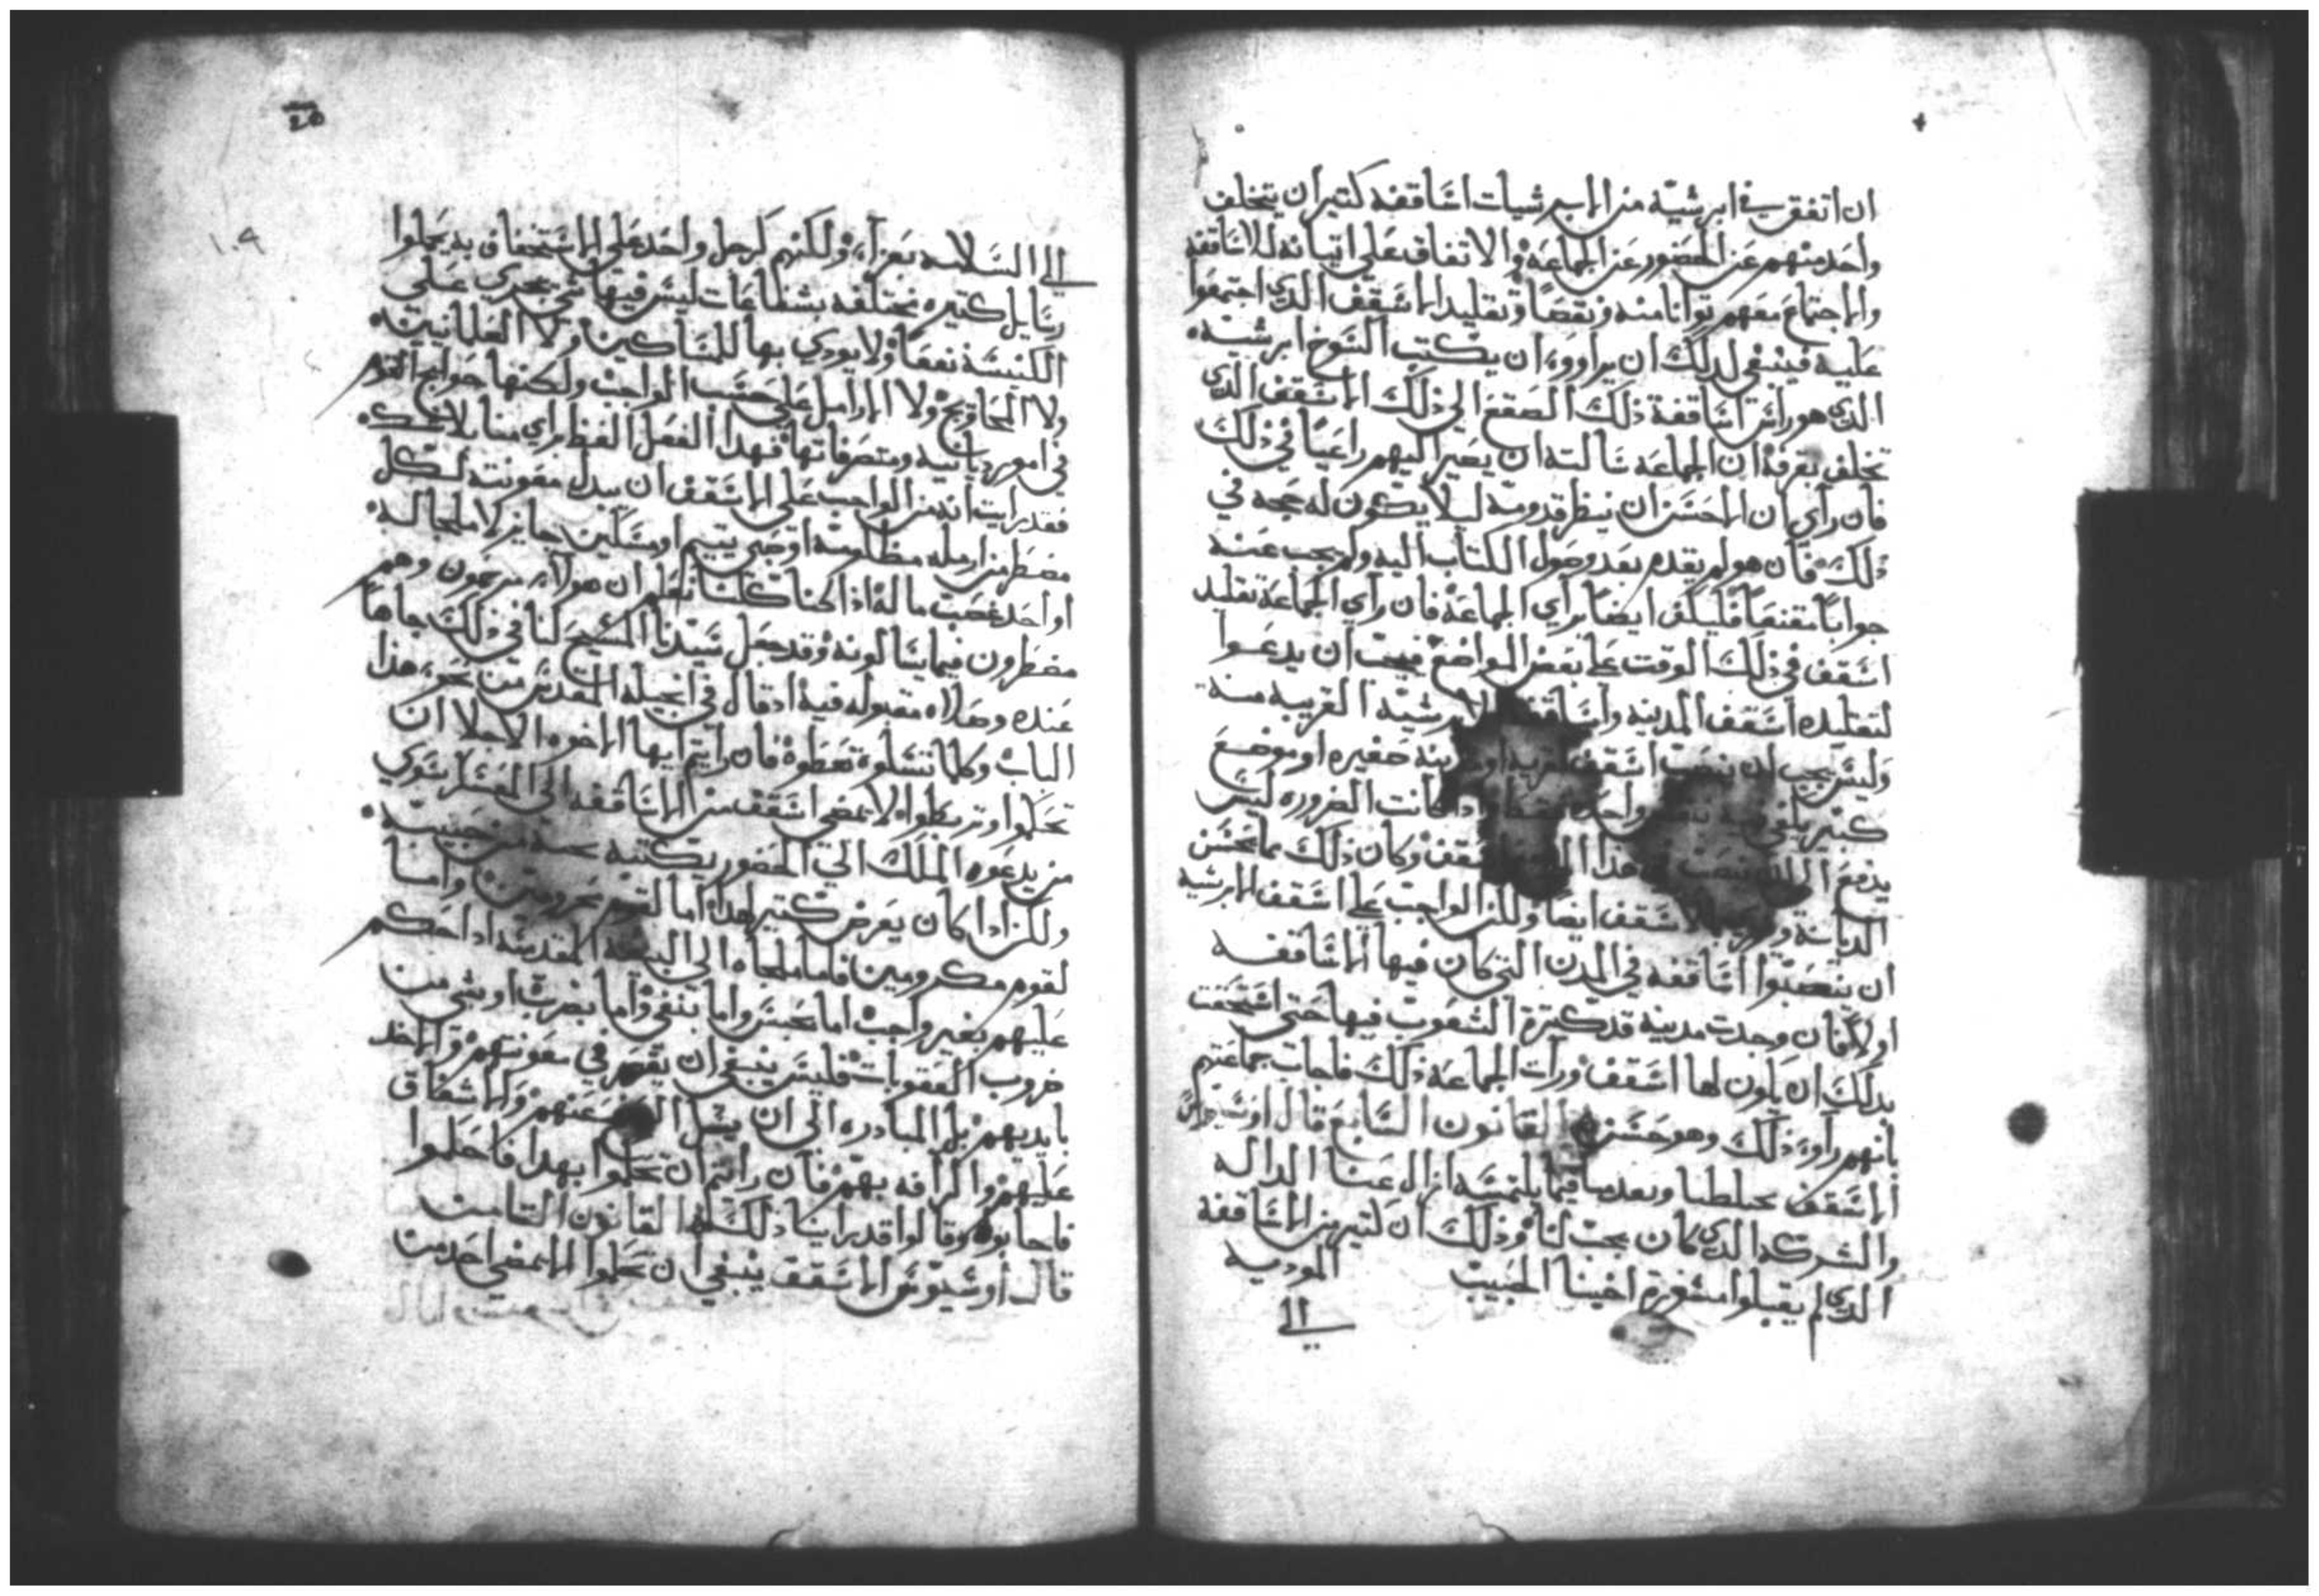 ان اتفق في ابرشيّة من الابرشيات اساقفه كتير ان يتخلف
واحد منهم عن الحضور عن الجماعة والاتفاق على اتيانه للاساقفه
والاجتماع معهم توانا منه ونقصًا وتقليد الاسقف الدي اجتمعوا
عليه فينبغي لدلك ان يراووه ان يكتب ابرشيه
الدي هو راس اساقفة ذلك الصقع الي ذلك الاسقف الدي
تخلف يعرفه ان الجماعه سالته ان يصير اليهم راغبًا في ذلك
فان راي ان الاحسن ان ينظر قدومه ليلا يكون له حجه في
ذلك فان هو لم يقدم بعد وصول الكتاب اليه ولم يجب عنه
جوابًا مقنعًا فليكف ايضًا براي الجماعة فان راي الجماعة تقليد
اسقف في ذلك الوقت على بعض المواضع فيجب ان يدعوا
لتقليده اسقف المدينه واساقفة الابرشيه القريبه منه
وليس يجب ان ينصب اسقف لقريه او مدينه صغيره او موضع
كبير يكفي فيه واحد كانت الضروره ليس
يدفع هذا وكان ذلك مما يحسن
الديانة الاسقف ايضا ولكن الواجب على اسقف الابرشيه
ان ينصبوا اساقفه في المدن التي كان فيها الاساقفه
اولا فان وجدت مدينه قد كترة الشعوب فيها حتى استحقت
بدلك ان يكون لها اسقف ورات الجماعه ذلك فاجات جماعتهم
بانهم راوو ذلك وهو حسن القانون السابع قال اوسيوس
الاسقف فيما يلتمسه ازال عنا الداله
والشركه الدي كان يجب لنا وذلك ان كتير من الاساقفه
الدي لم يقبلوا مشورة اخينا الحبيب الموديه
الى
20
١٠٩
الى السلامه بعزاء ولكنهم كرجل واحد على الاستخفاف به يحملوا
رسايل كتيره مختلفه بشفاعات ليس فيها شي يجدي على
الكنيسة نفعًا ولا يودي بها للمساكين ولا العلمانيين
ولا المحاويج ولا الارامل على حسب الواجب ولكنها حوايج القوم
في امور ديانيه ومتصرفاتها فهدا الفعل الفظ براي منا بلا شك
فقد رايت انه من الواجب على الاسقف ان يبدل معونته لكل
مضطر من ارمله مظلومة او صبي يتيم او مسكين حايز لا ملجا له
او احد غصب ماله اذا كنا كلنا نعلم ان هولاء مرحمون وهم
مضطرون فيما يسالونه وقد جعل سيدنا المسيح لنا في ذلك جاهًا
عنده وصلاه مقبوله فيه اد قال في انجيله المقدس من نحو هذا
الباب وكلما تسلوه تعطوه فان رايتم ايها الاخوه الاجلا ان
تحكموا وتربطوا الا يمضي اسقف من الاساقفه الى العسكر سوي
من يدعوه الملك الي الحضور بكتبه
ولكن ادا كان يعرض كتير هدا اما لقوم محرومين واما
لقوم مكرومين فاما ملجاه الي البيعه المقدسه ادا حكم
عليهم بغير واجب اما بحبس واما بنفي واما بضرب او بشي من
ضروب العقوبات فليس ينبغي ان يقصر في معونتهم والاخد
بايديهم بل المبادره الى ان يسل عنهم والاشفاق
عليهم والرافه بهم فان رايتم ان تحكموا بهدا فاحكموا
فاجابوه وقالوا قد راينا ذلك كلنا القانون التامن
قال اوسيوس الاسقف ينبغي ان تحكموا الا يمضي احد من